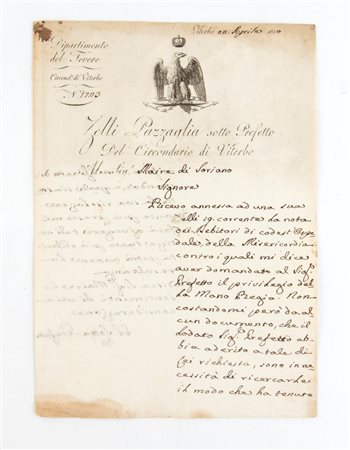 Viterbo 22. Aprile 1810
Dipartimento
del Tevere
Circond. di Viterbo
N. 1743
Zelli Pazzaglia sotto Prefetto
Del Circondario di Viterbo
Maire di Soriano
Signore
Ricevo annessa ad una sua
delli 19. corrente la nota
dei Debitori di codest' Ospe
dale della Misericordia
contro i quali mi dice
aver domandato al Sig.
Prefetto il privilegio del
la Mano Regia. Non
costandomi però da al
cun documento, che il
lodato Sig. Prefetto ab-
bia aderito a tale di
Lei richiesta, sono in ne
cessità di ricercarle
il modo che ha tenuto